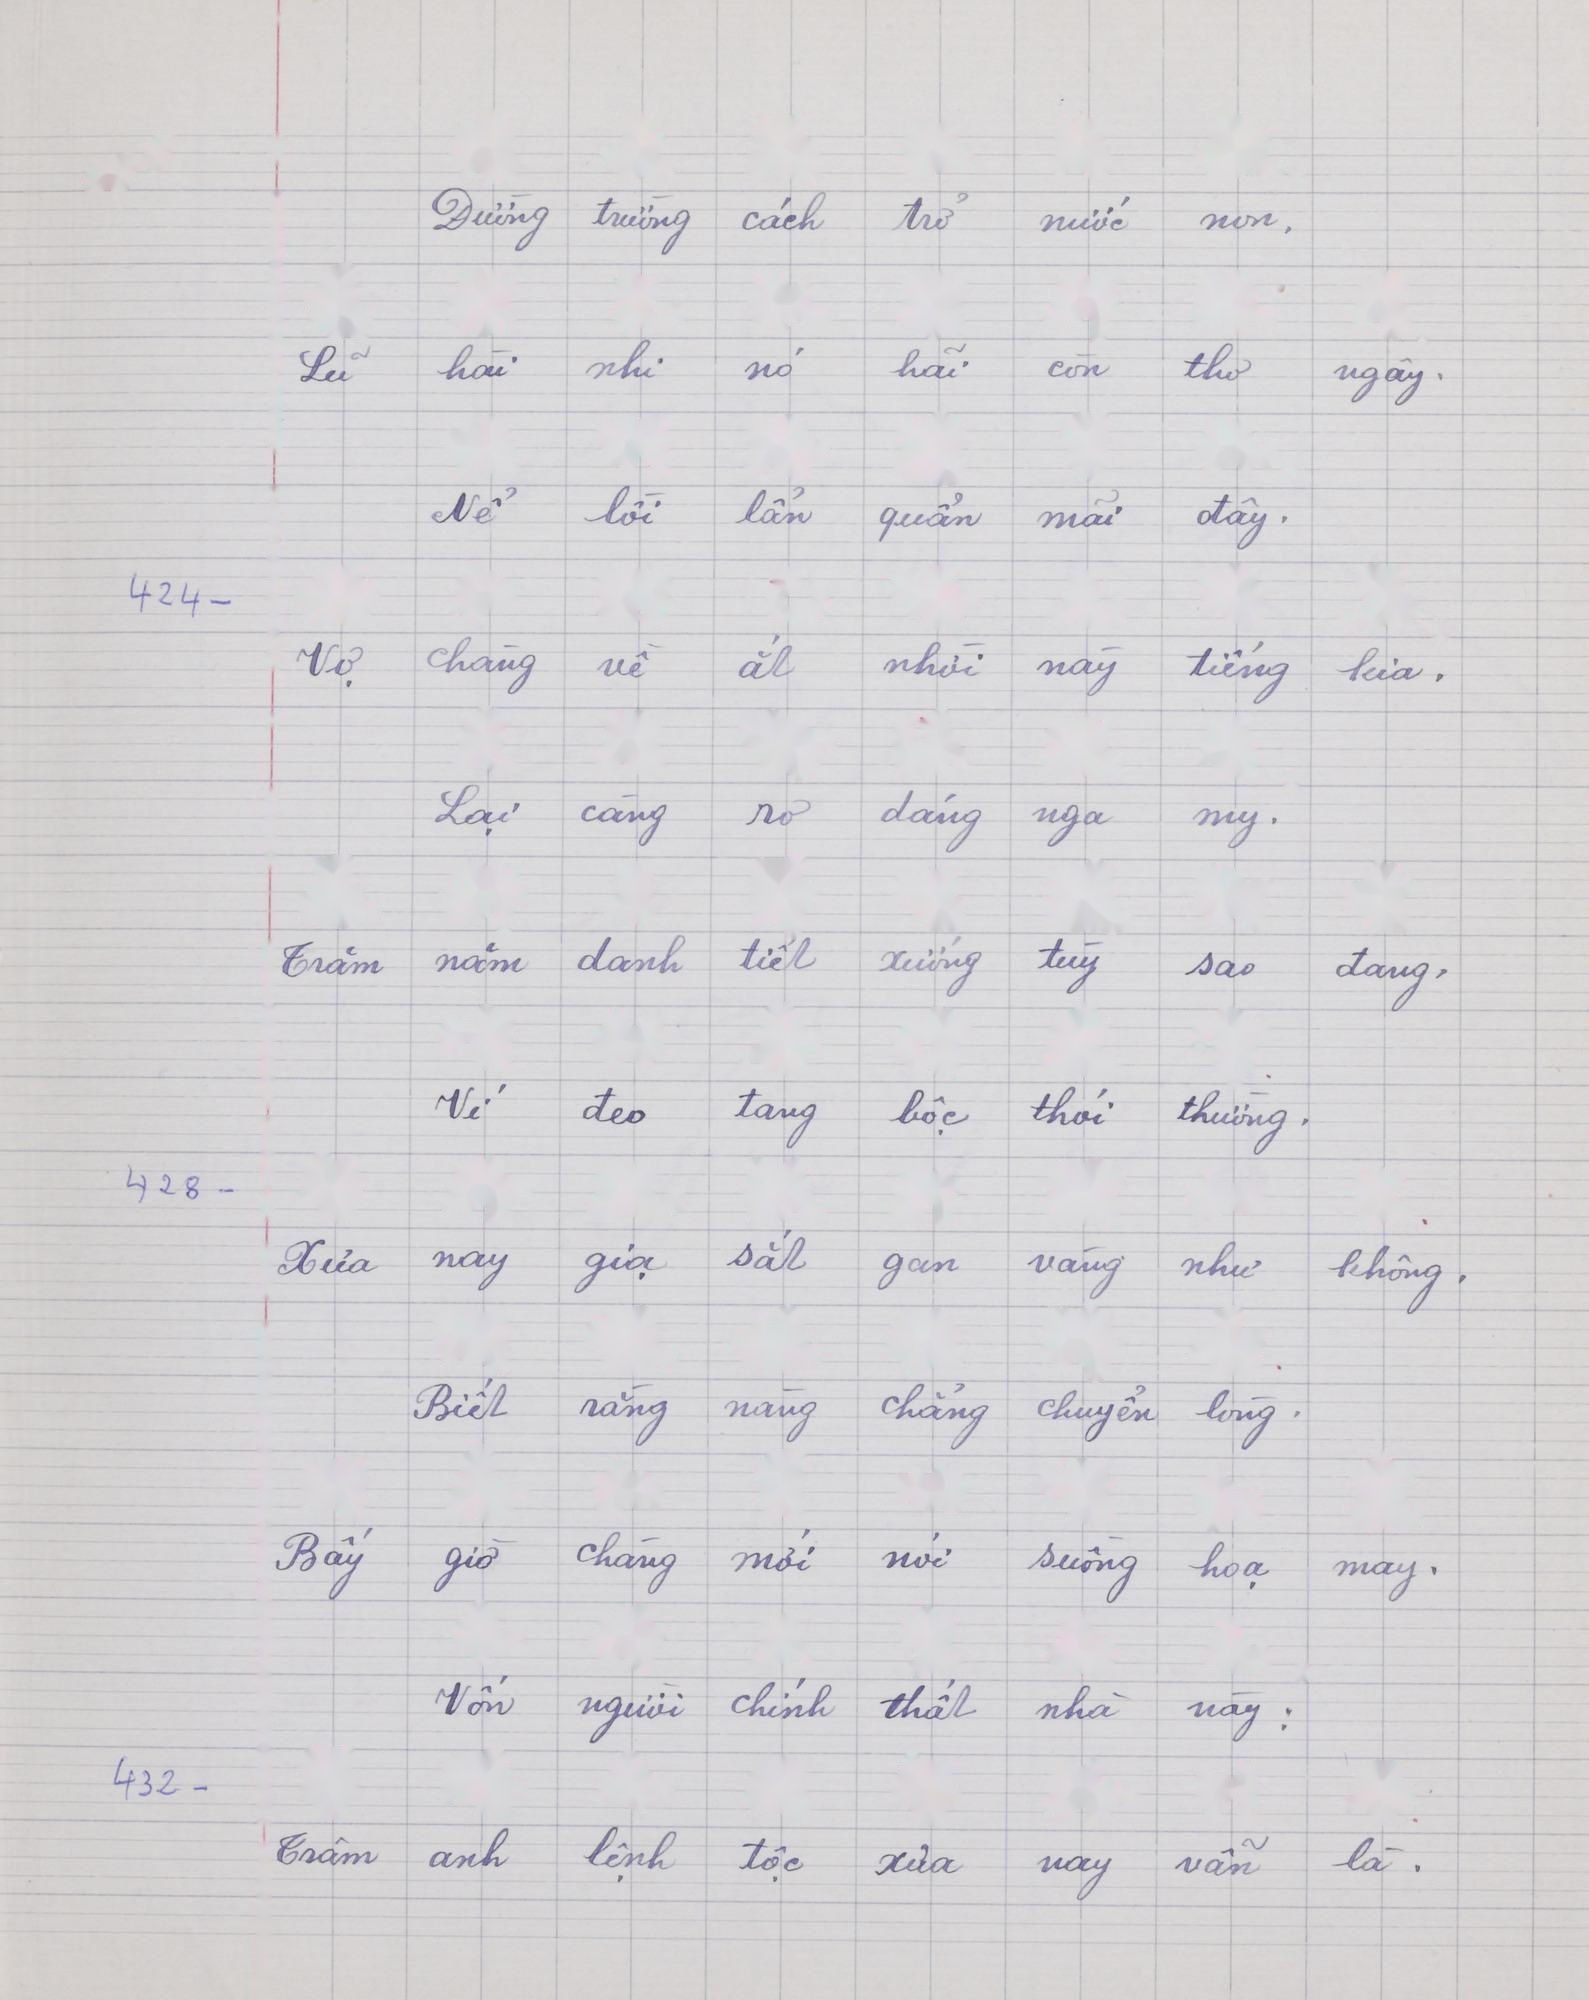 Đường trường cách trở nước non.
Lũ hài nhi nó hãi còn thơ ngây.
Nể lời lẩn quẩn mãi đây.
424-
Vợ chàng về ắt nhời này tiếng kia.
Lại càng rơ dáng nga my.
Trăm năm danh tiết xướng tùy sao đang.
Ví đeo tang bộc thói thường.
428-
Xưa nay giạ sắt gan vàng như không.
Biết rằng nàng chẳng chuyển lòng.
Bấy giờ chàng mới nói suồng hoạ may.
Vốn người chính thất nhà này:
432-
Trâm anh lệnh tộc xưa nay vẫn là.